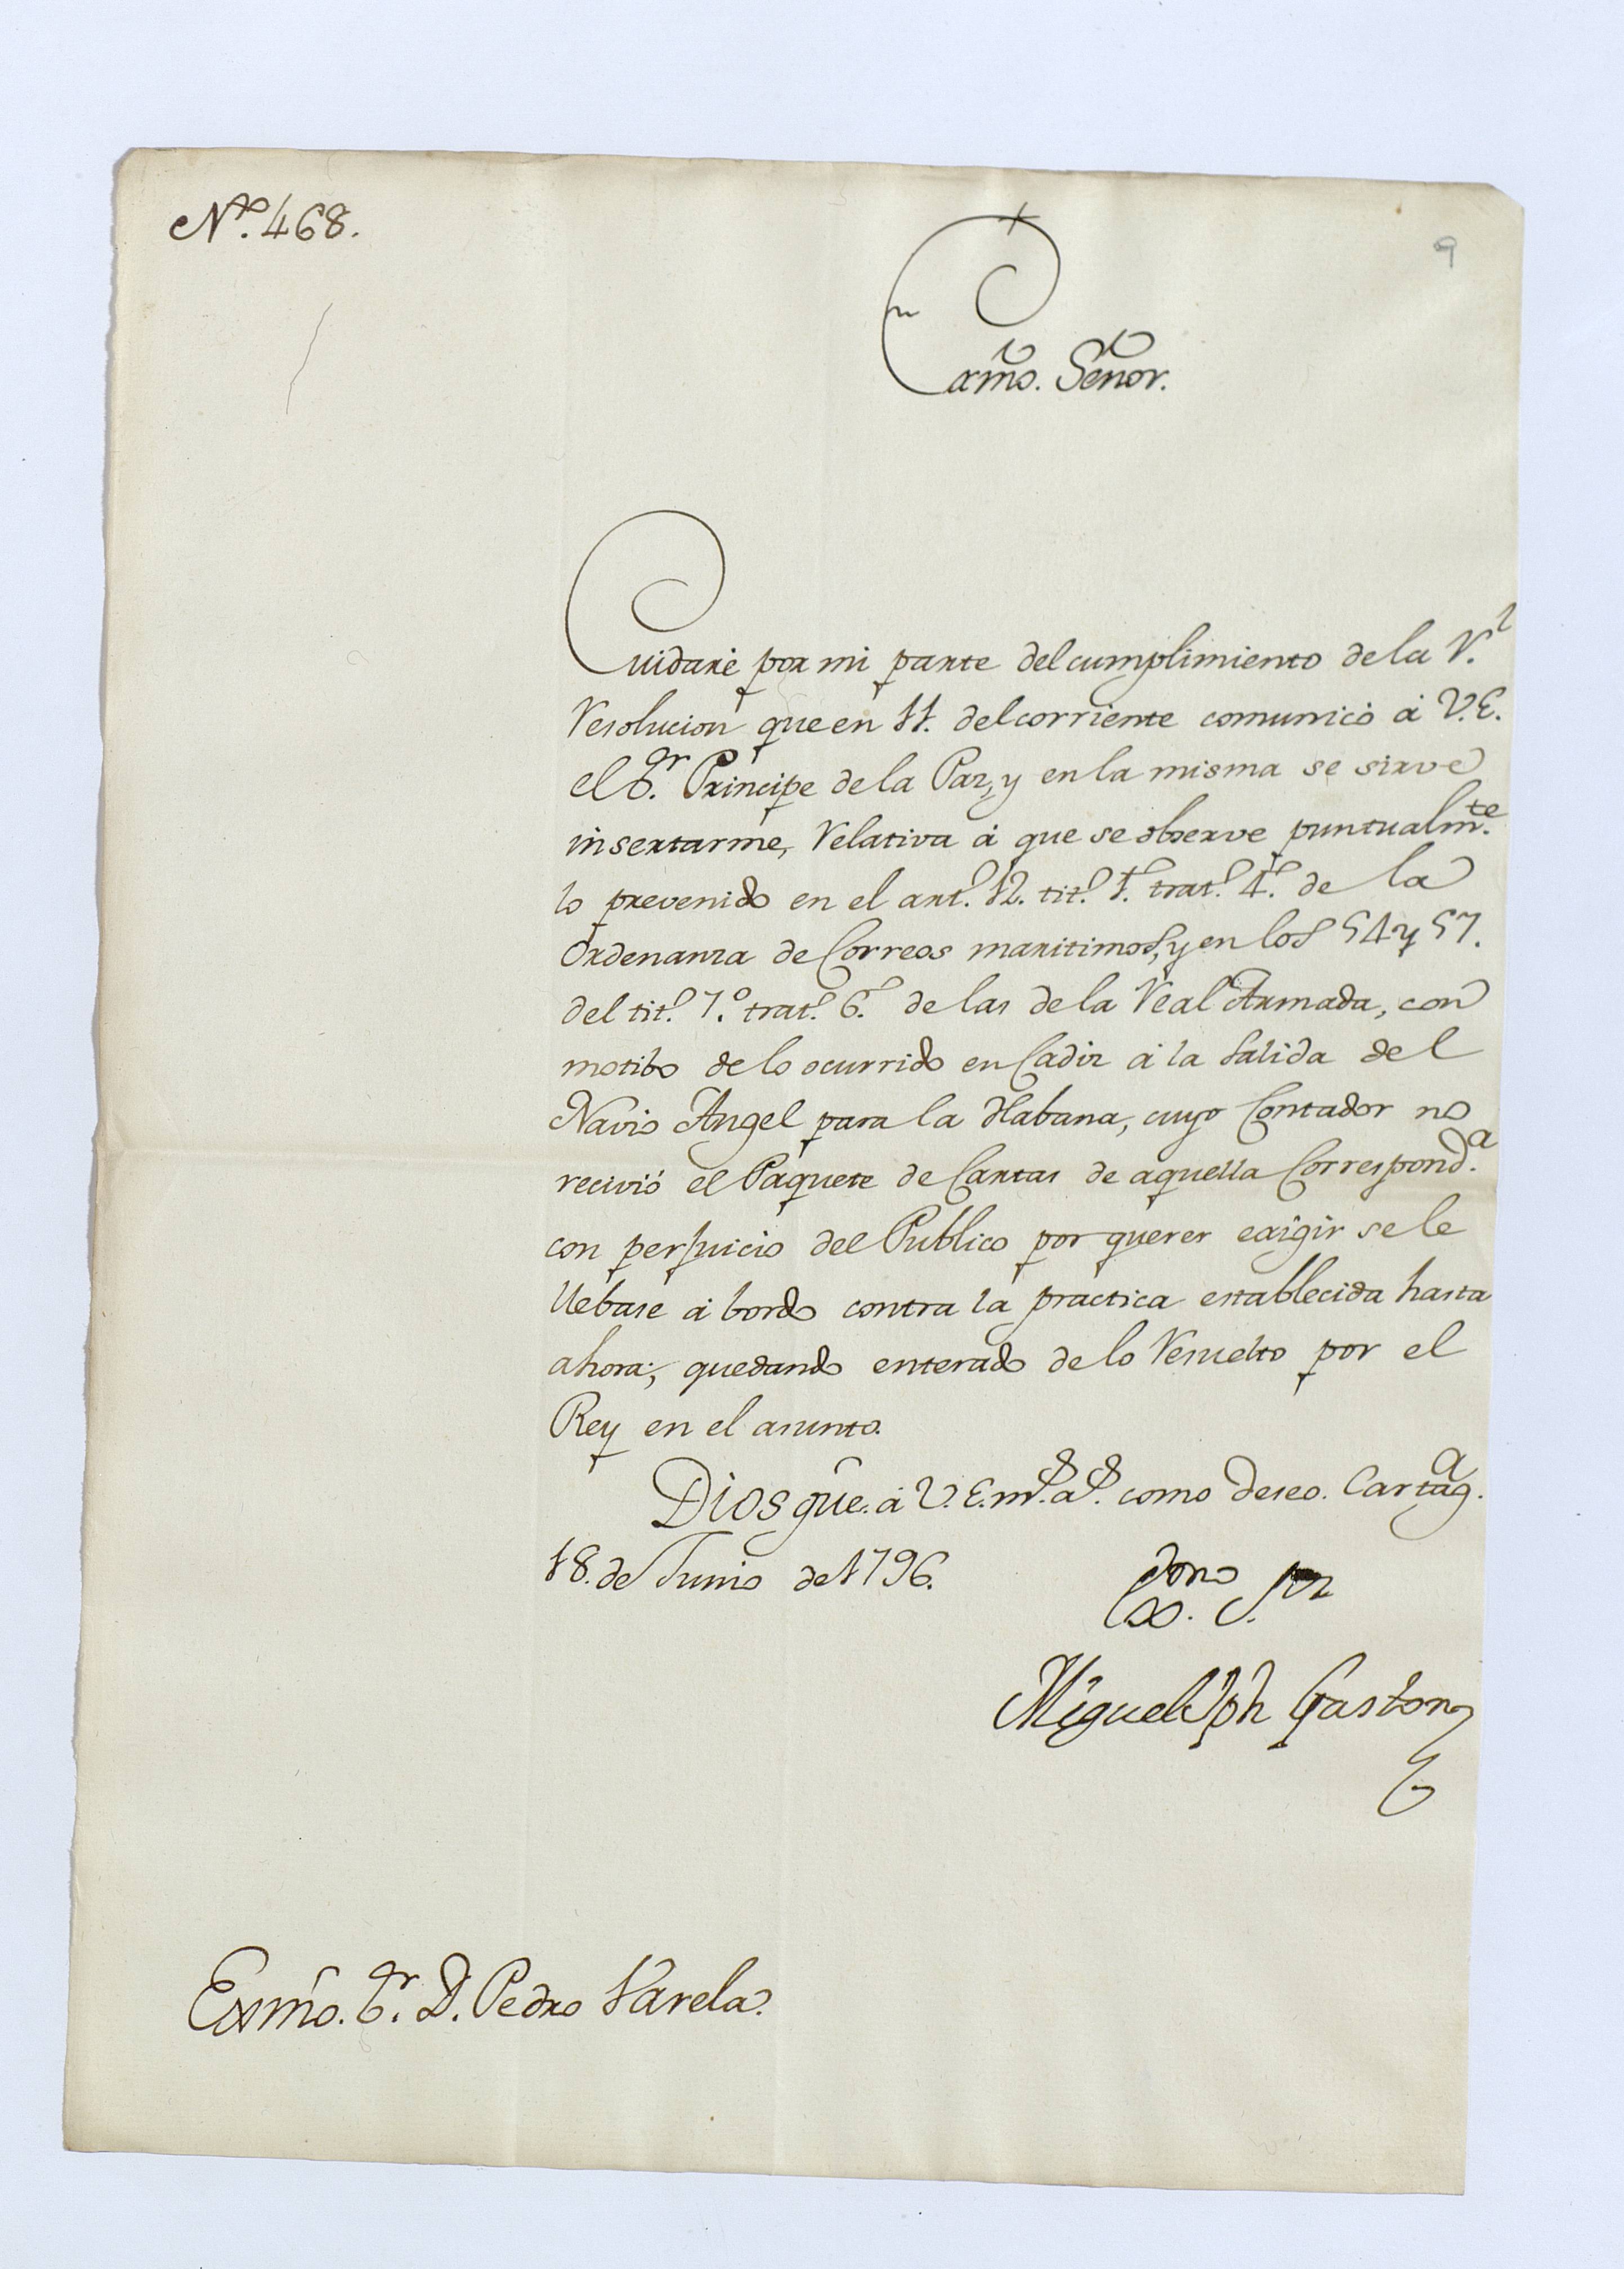 N.º 468.
9
Exmo. Señor.
Cuidaré por mi parte del cumplimiento de la R.l
Resolucion que en 11. del corriente comunicó á V.E.
el S.or Principe de la Paz, y en la misma se sirve
insertarme, Relativa á que se observe puntualm.te
lo prevenido en el art.º 12. tit.º 1.º trat.º 4.º de la
Ordenanza de Correos maritimos, y en los 54 y 57.
del tit.º 7.º trat.º 6.º de las de la Real Armada, con
motibo de lo ocurrido en Cadiz á la salida del
Navio Angel para la Habana, cuyo Contador no
recivió el Paquete de Cartas de aquella Correspond.a
con perjuicio del Publico por querer exigir se le
llebase á bordo contra la practica establecida hasta
ahora; quedando enterado de lo Resuelto por el
Rey en el asunto.
Dios gũe. á V.E. m.s a.s como deseo. Cartag.a
18. de Junio de 1796.
Exmo. S.or
Miguel Jph Gaston
Exmo. S.or D. Pedro Varela.